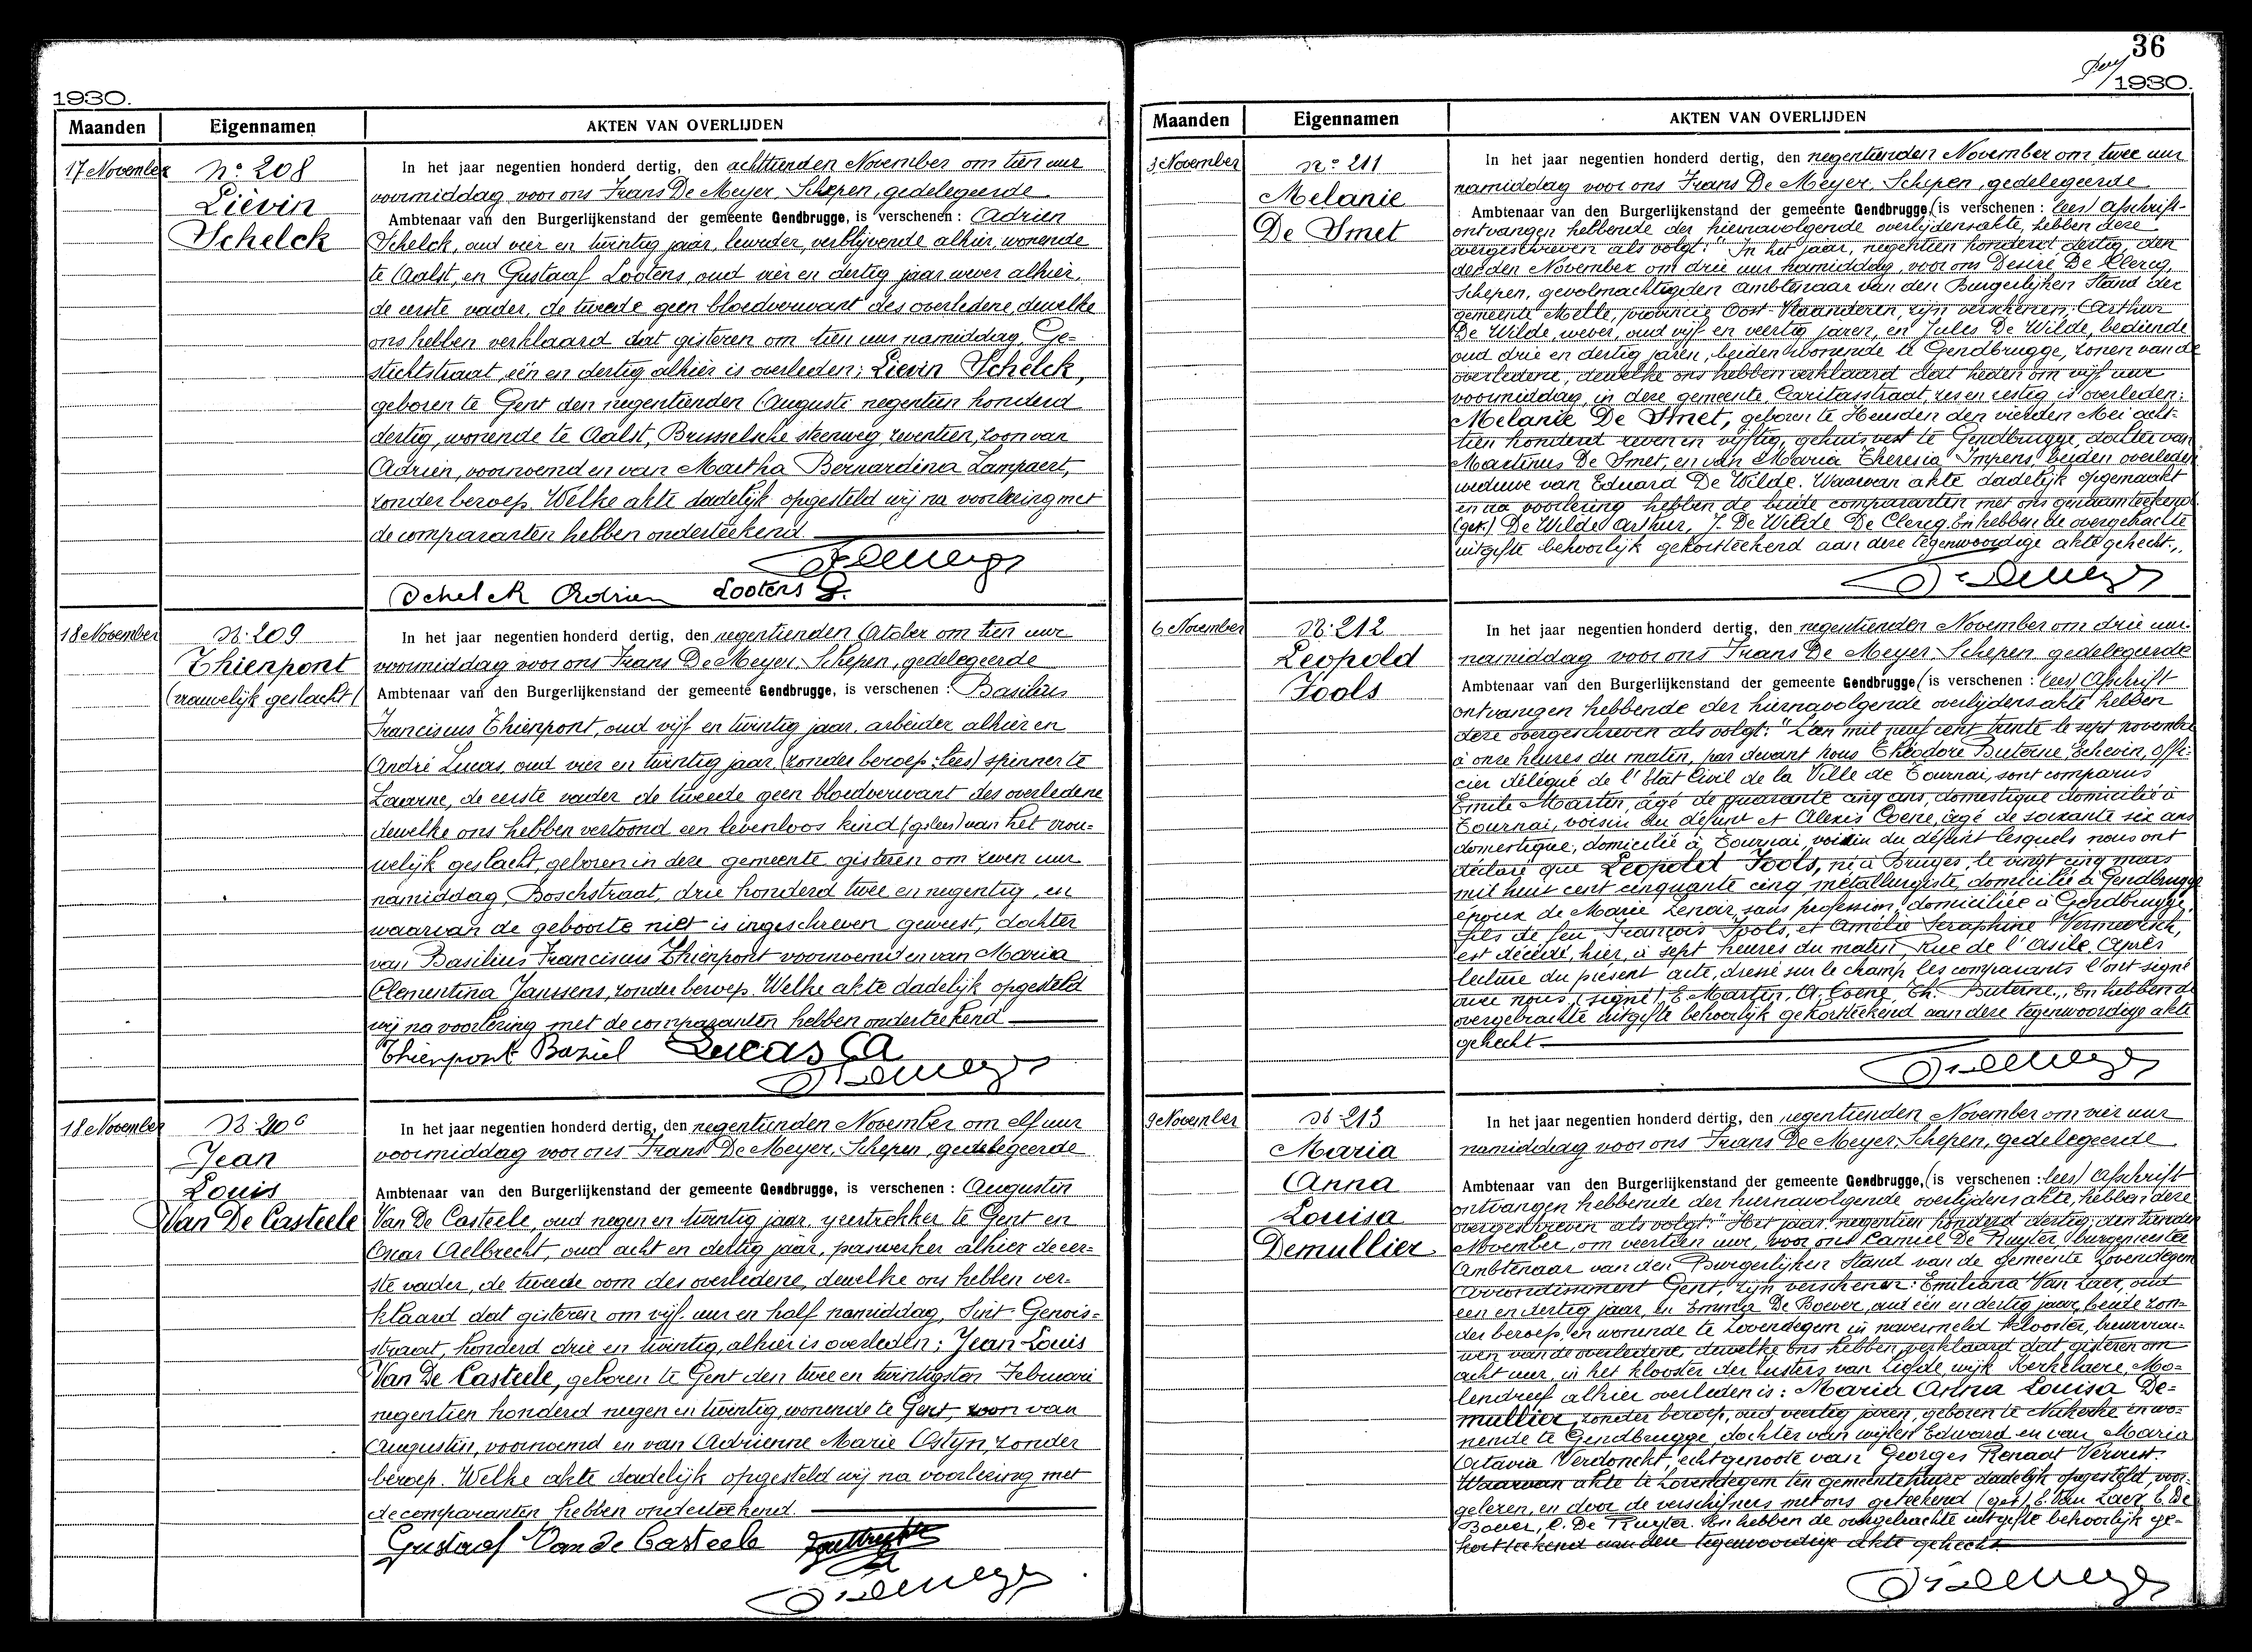 1930.
Maanden Eigennamen AKTEN VAN OVERLIJDEN
17 November
No 208
Liévin
Schelck
In het jaar negentien honderd dertig, den achttienden November om tien uur
voormiddag voor ons Frans De Meyer, Schepen, gedelegeerde
Ambtenaar van den Burgerlijkenstand der gemeente Gendbrugge, is verschenen: Adrien
Schelck, oud vier en twintig jaar, verblijvende alhier, wonende
te Aalst, en Gustaaf Lootens, oud vier en dertig jaar wever alhier,
de eerste vader, de tweede geen bloedverwant des overledene, dewelke
ons hebben verklaard dat gisteren om tien uur namiddag, Ge-
stichtstraat, één en dertig alhier is overleden: Lievin Schelck,
geboren te Gent den negentienden Auguste negentien honderd
dertig, wonende te Aalst, Brusselsche steenweg, zeventien, zoon van
Adrien, voornoemd en van Martha Bernardina Lampaert,
zonder beroep. Welke akte dadelijk opgesteld wij na voorlezing met
de comparanten hebben onderteekend.
Schelck Adrien Lootens G.
18 November
No 209
Thienpont
(vrouwelijk geslacht)
In het jaar negentien honderd dertig, den negentienden October om tien uur
voormiddag voor ons Frans De Meyer, Schepen, gedelegeerde
Ambtenaar van den Burgerlijkenstand der gemeente Gendbrugge, is verschenen: Basilius
Franciscus Thienpont, oud vijf en twintig jaar, arbeider alhier en
André Lucas, oud vier en twintig jaar (zonder beroep: lees) spinner te
Laarne, de eerste vader de tweede geen bloedverwant des overledene
dewelke ons hebben vertoond een levenloos kind van het vrou-
welijk geslacht, geboren in deze gemeente gisteren om zeven uur
namiddag, Boschstraat, drie honderd twee en negentig, en
waarvan de geboorte niet is ingeschreven geweest, dochter
van Basilius Franciscus Thienpont voornoemd en van Maria
Clementina Janssens, zonder beroep. Welke akte dadelijk opgesteld
wij na voorlezing met de comparanten hebben onderteekend
Thienpont Baziel Lucas A
18 November
No 210
Jean
Louis
Van De Casteele
In het jaar negentien honderd dertig, den negentienden November om elf uur
voormiddag voor ons Frans De Meyer, Schepen, gedelegeerde
Ambtenaar van den Burgerlijkenstand der gemeente Gendbrugge, is verschenen: Augustin
Van De Casteele, oud negen en twintig jaar, ijzertrekker te Gent en
Oscar Aelbrecht, oud acht en dertig jaar, paswerker alhier de eer-
ste vader, de tweede oom des overledene, dewelke ons hebben ver-
klaard dat gisteren om vijf uur en half namiddag, Sint-Genois-
straat, honderd drie en twintig, alhier is overleden: Jean Louis
Van De Casteele, geboren te Gent den twee en twintigsten Februari
negentien honderd negen en twintig, wonende te Gent, zoon van
Augustin, voornoemd en van Adrienne Marie Ostyn, zonder
beroep. Welke akte dadelijk opgesteld wij na voorlezing met
de comparanten hebben onderteekend.
Gustaaf Van de Casteele
36
1930.
Maanden Eigennamen AKTEN VAN OVERLIJDEN
3 November
No 211
Melanie
De Smet
In het jaar negentien honderd dertig, den negentienden November om twee uur
namiddag voor ons Frans De Meyer, Schepen, gedelegeerde
Ambtenaar van den Burgerlijkenstand der gemeente Gendbrugge, (is verschenen: lees) Afschrift
ontvangen hebbende der hiernavolgende overlijdensakte, hebben deze
overgeschreven als volgt: "In het jaar, negentien honderd dertig, den
derden November om drie uur namiddag, voor ons Desiré De Clercq,
Schepen, gevolmachtigden ambtenaar van den Burgerlijken Stand der
gemeente Melle, provincie Oost-Vlaanderen, zijn verschenen: Arthur
De Wilde, wever, oud vijf en veertig jaren, en Jules De Wilde, bediende
oud drie en dertig jaren, beiden wonende te Gendbrugge, zonen van de
overledene, dewelke ons hebben verklaard dat heden om vijf uur
voormiddag, in deze gemeente, Caritasstraat, zes en zestig is overleden:
Melanie De Smet, geboren te Heusden den vierden Mei acht-
tien honderd zeven en vijftig, gehuisvest te Gendbrugge, dochter van
Martinus De Smet, en van Maria Theresia Impens, beiden overleden
weduwe van Eduard De Wilde. Waarvan akte dadelijk opgemaakt
en na voorlezing hebben de beide comparanten met ons genaamteekend
(get.) De Wilde Arthur, J. De Wilde De Clercq. En hebben de overgebrachte
uitgifte behoorlijk gekortteekend aan deze tegenwoordige akte gehecht.
6 November
No 212
Leopold
Fools
In het jaar negentien honderd dertig, den negentienden November om drie uur
namiddag voor ons Frans De Meyer, Schepen, gedelegeerde
Ambtenaar van den Burgerlijkenstand der gemeente Gendbrugge (is verschenen: lees) Afschrift
ontvangen hebbende der hiernavolgende overlijdensakte hebben
deze overgeschreven als volgt: "L'an mil neuf cent trente le sept novembre
à onze heures du matin, par devant nous Théodore Buterne, Echevin, offi-
cier délégué de l'Etat Civil de la Ville de Tournai, sont comparus
Emile Martin, âgé de quarante cinq ans, domestique domicilié à
Tournai, voisin du défunt et Alexis Coene, âgé de soixante six ans
domestique, domicilié à Tournai, voisin du défunt lesquels nous ont
déclaré que Leopold Fools, né à Bruges, le vingt cinq mars
mil huit cent cinquante cinq, métallurgiste, domicilié à Gendbrugge
époux de Marie Lenoir, sans profession, domiciliée à Gendbrugge,
fils de feu François Fools, et Amélie Seraphine Vermeersch,
est décédé, hier, à sept heures du matin, rue de l'Asile. Après
lecture du présent acte, dressé sur le champ les comparants l'ont signé
avec nous, (signé) E. Martin, A. Coene, Th. Buterne., En hebben de
overgebrachte uitgifte behoorlijk gekortteekend aan deze tegenwoordige akte
gehecht.
9 November
No 213
Maria
Anna
Louisa
Demullier
In het jaar negentien honderd dertig, den negentienden November om vier uur
namiddag voor ons Frans De Meyer, Schepen, gedelegeerde
Ambtenaar van den Burgerlijkenstand der gemeente Gendbrugge, (is verschenen: lees) Afschrift
ontvangen hebbende der hiernavolgende overlijdensakte, hebben deze
overgeschreven als volgt: "Het jaar negentien honderd dertig, den tienden
November, om veertien uur, voor ons Camiel De Ruyter, burgemeester
Ambtenaar van den Burgerlijken Stand van de gemeente Lovendegem
Arrondissement Gent, zijn verschenen: Emiliana Van Laer, oud
een en dertig jaar, en Emma De Boever, oud één en dertig jaar, beide zon-
der beroep, en wonende te Lovendegem in navermeld klooster, buurvrou-
wen van de overledene, dewelke ons hebben verklaard dat gisteren om
acht uur, in het klooster der Zusters van Liefde, wijk Kerkelaere, Mo-
lendreef alhier overleden is: Maria Anna Louisa De-
mullier, zonder beroep, oud veertig jaren, geboren te Nukerke en wo-
nende te Gendbrugge, dochter van wijlen Edward en van Maria
Octavia Verdonckt, echtgenoote van Georges Renaat Ververt.
Waarvan akte te Lovendegem ten gemeentehuize dadelijk opgesteld, voor-
gelezen, en door de verschijners met ons geteekend (get) E. Van Laer, E. De
Boever, C. De Ruyter. En hebben de overgebrachte uitgifte behoorlijk ge-
kortteekend aan deze tegenwoordige akte gehecht.